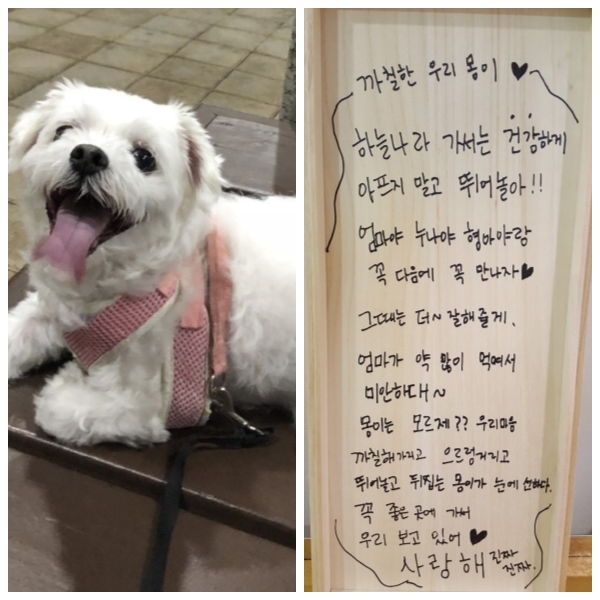 까칠한 우리 몽이 ♥
하늘나라 가서는 건강하게
아프지 말고 뛰어놀아!!
엄마야 누나야 형아야랑
꼭 다음에 꼭 만나자♥
그때는 더~ 잘해줄게.
엄마가 약 많이 먹여서
미안하대~
몽이는 모르제?? 우리마음
까칠해가지고 으르렁거리고
뛰어놀고 뒤집는 몽이가 눈에 선하다.
꼭 좋은곳에 가서
우리 보고 있어 ♥
사랑해 진짜
진짜.